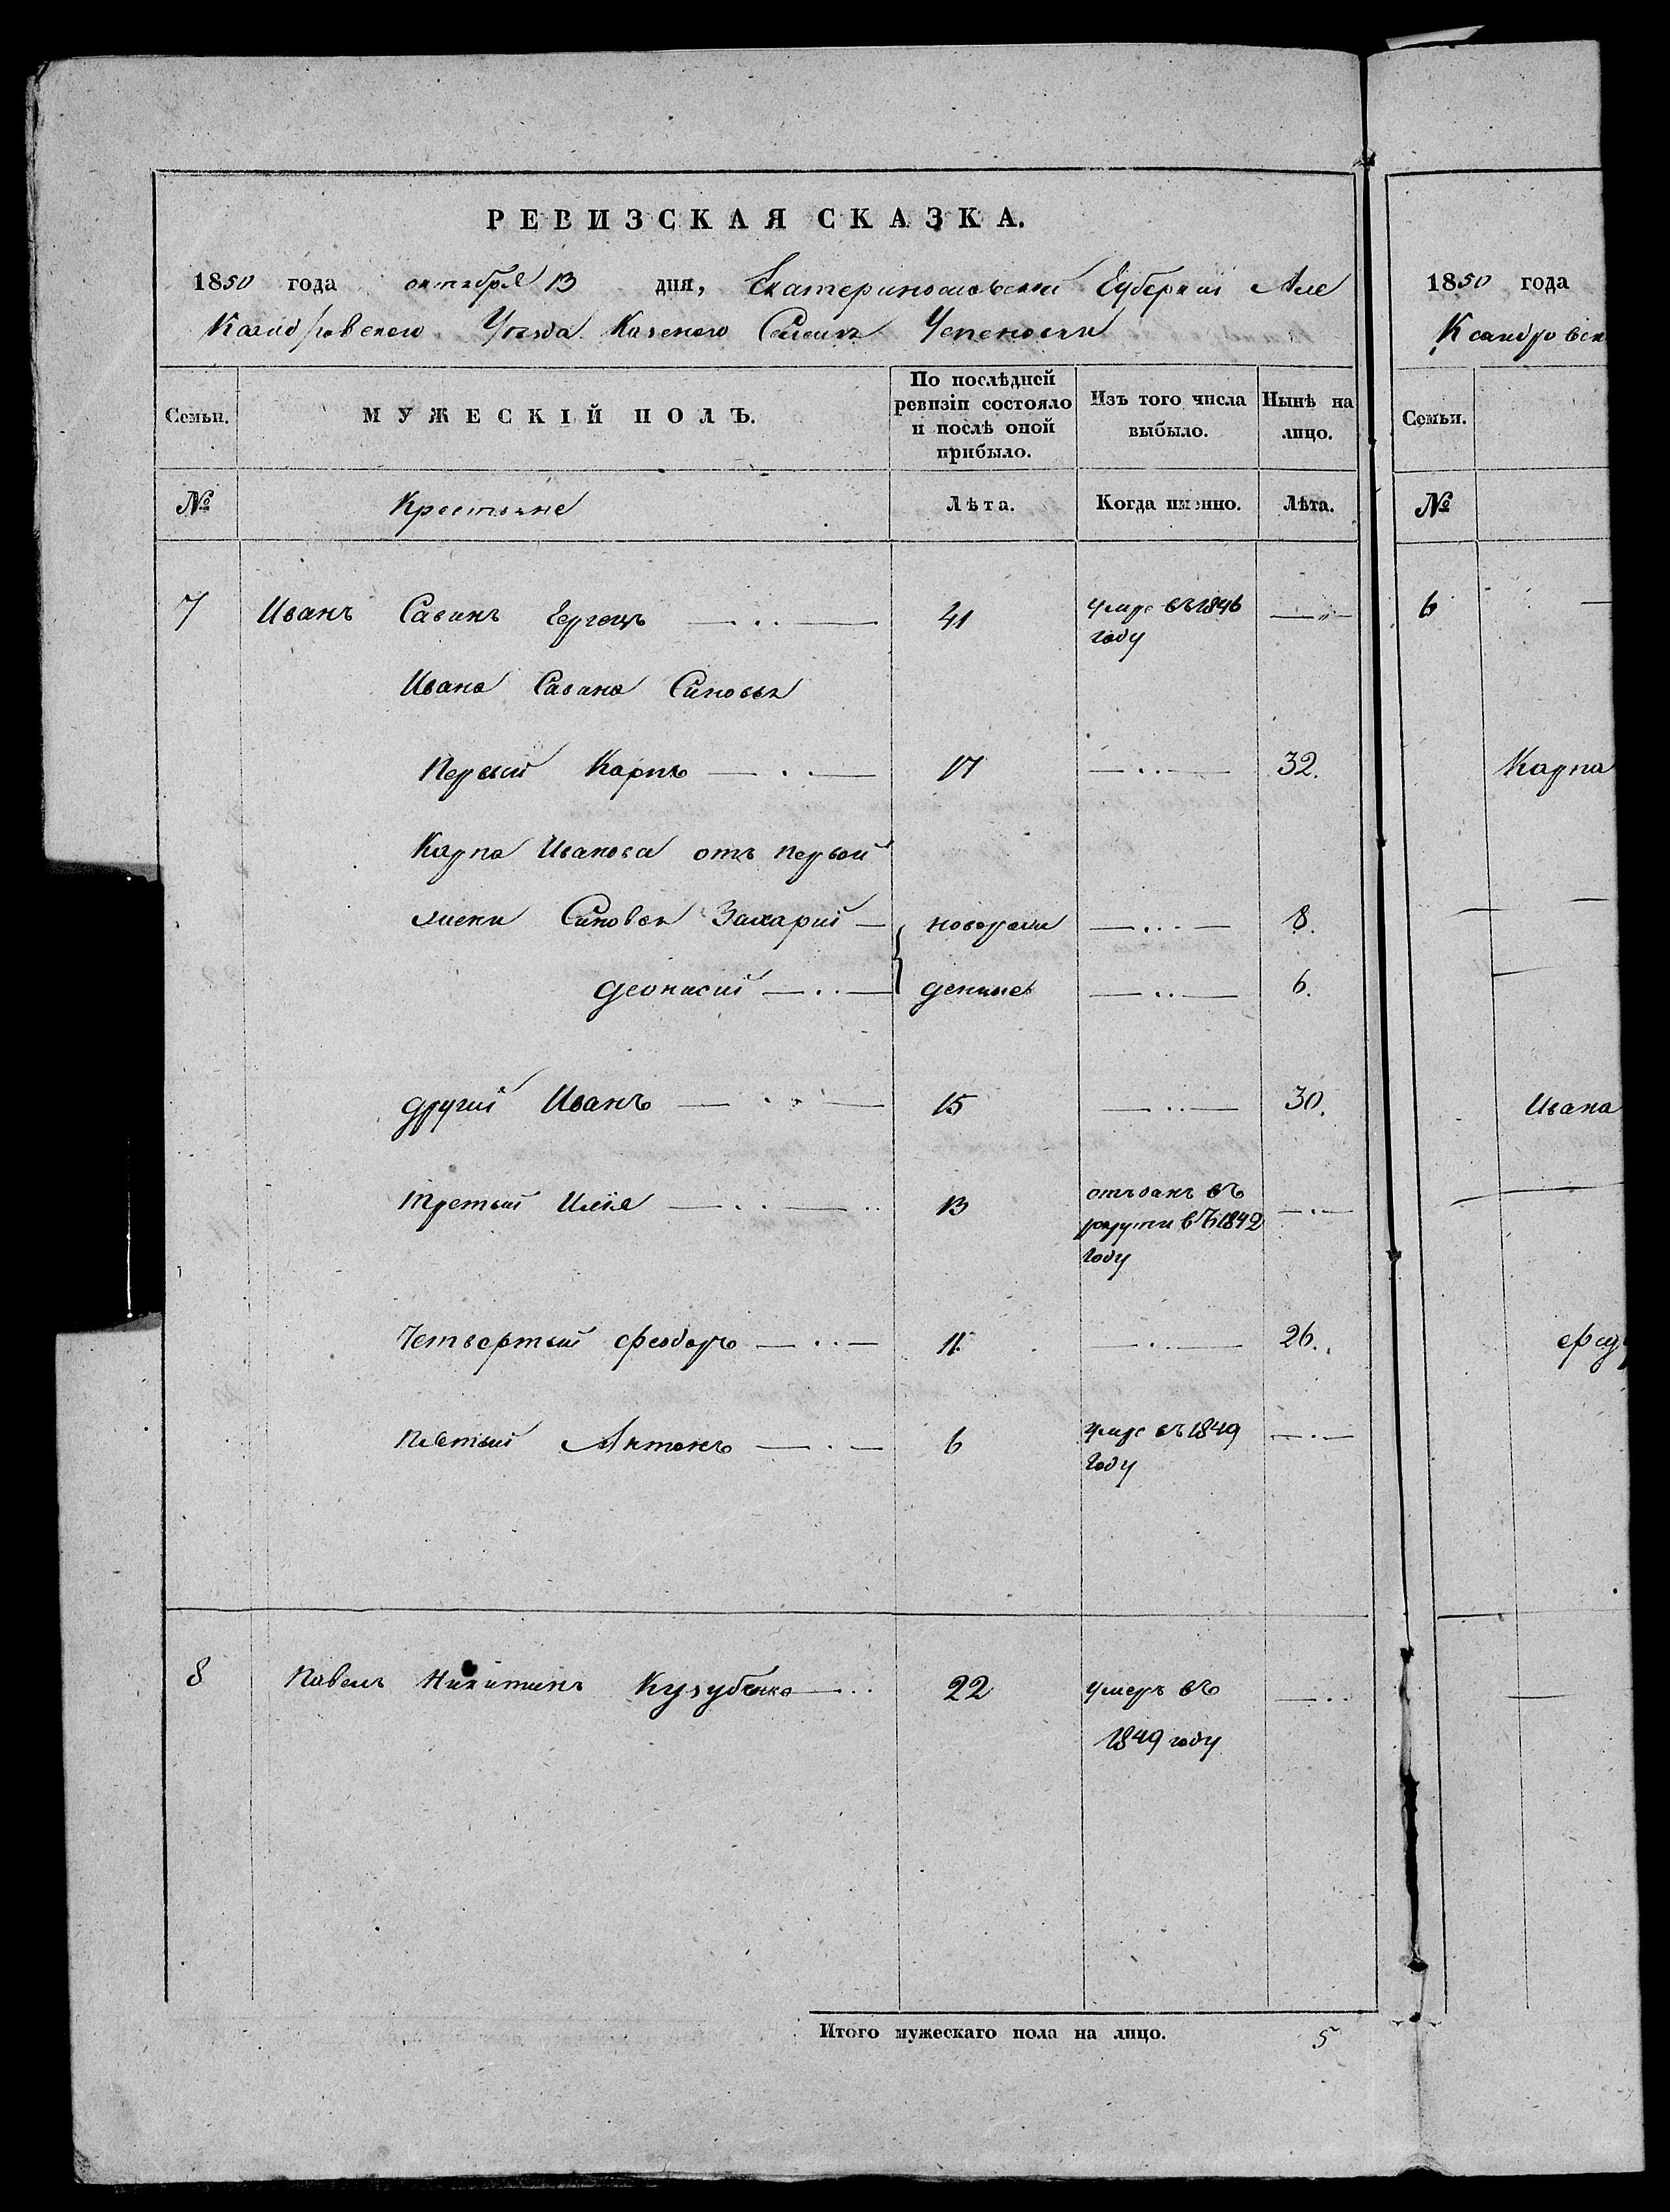 РЕВИЗСКАЯ СКАЗКА.
1850 года октября 13 дня, Екатеринославской Губернии Але
Ксандровского Уезда Казеного Селения
Семьи. МУЖЕСКІЙ ПОЛЪ. По послѣдней ревизіи состояло и послѣ оной прибыло. Изъ того числа выбыло. Нынѣ на лицо.
№ Крестьяне Лѣта. Когда именно. Лѣта.
7 Иванъ Савинъ 41 умре въ 1846
году
Ивана Савина Синовья
Первый Карпъ 17 32.
Карпа Иванова отъ первой
жени Синовья Захарий новорож 8.
Деонисий денные 6.
Другий Иванъ 15 30.
Третый Илия 13 отъданъ въ
рекрути въ 1842
году
Четвертый Феодоръ 11. 26.
Пятый Антонъ 6 умре въ 1849
году
8 Павелъ Никитинъ Кузубенко 22 умеръ въ
1849 году
Итого мужескаго пола на лицо. 5
1850 года
Ксандровск
Семьи.
№
6
Карпа
Ивана